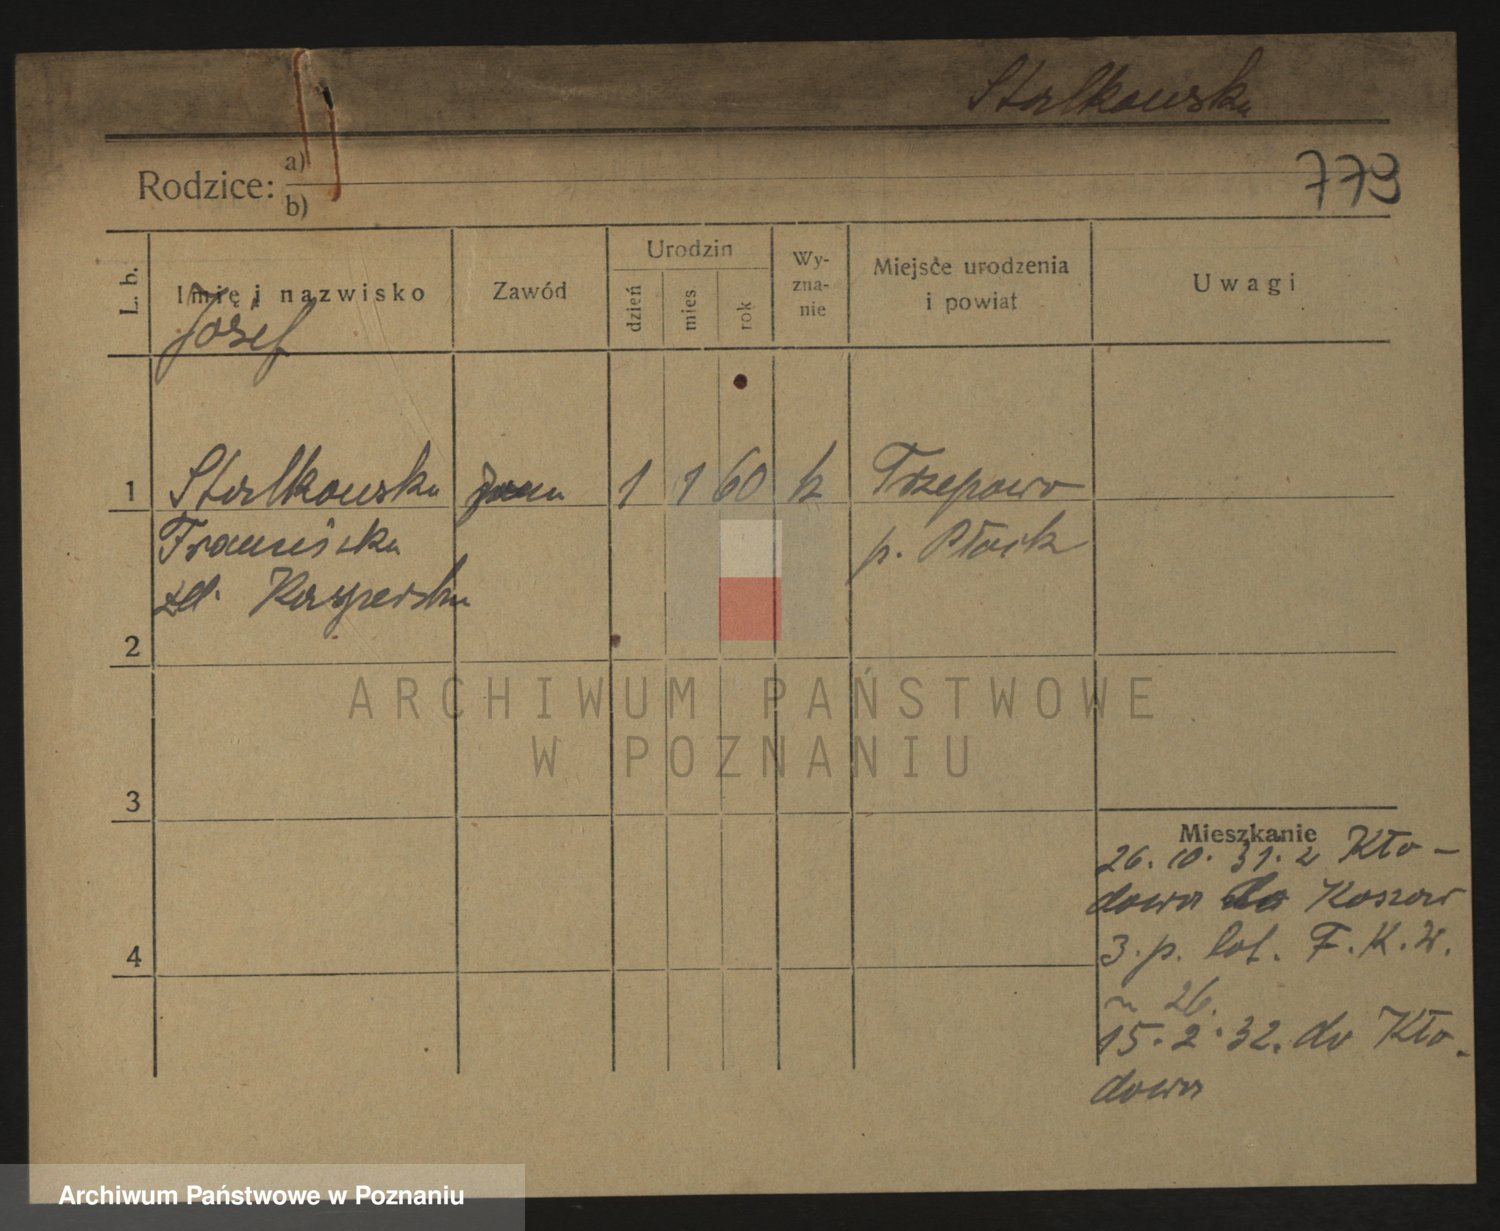 Stolkowska
773
Rodzice: a)
b)
L. b.
Imię i nazwisko
Zawód
Urodzin
dzień
mies
rok
Wy-
zna-
nie
Miejsce urodzenia
i powiat
Uwagi
Józef
1 Stolkowska 1 1 60 k Trzepowo
Franciszka p. Płock
zd. Kasperska
2
3
4
Mieszkanie
26. 10. 31. z Kło-
dowa do Koszar
3. p. lot. F. K. W.
26.
15. 2. 32. do Kło-
dowa
ARCHIWUM PAŃSTWOWE
W POZNANIU
Archiwum Państwowe w Poznaniu